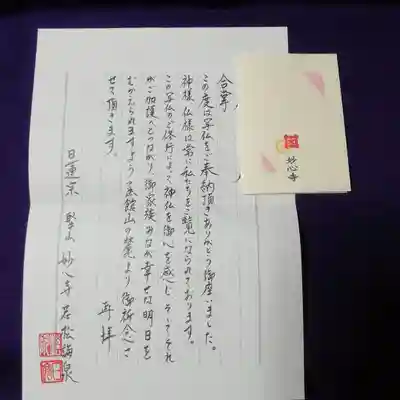 合掌
この度は写仏をご奉納頂きありがとう御座いました。
神様、仏様は常に私たちをご覧になられております。
この写仏のご修行によって神仏を御心を感じ、そしてそれ
がご加護へとつながり、御家族みなが幸せな明日を
むかえられますよう函館山の麓より御祈念さ
せて頂きます。
再拝
日蓮宗 聖山 妙心寺 若松
妙心寺